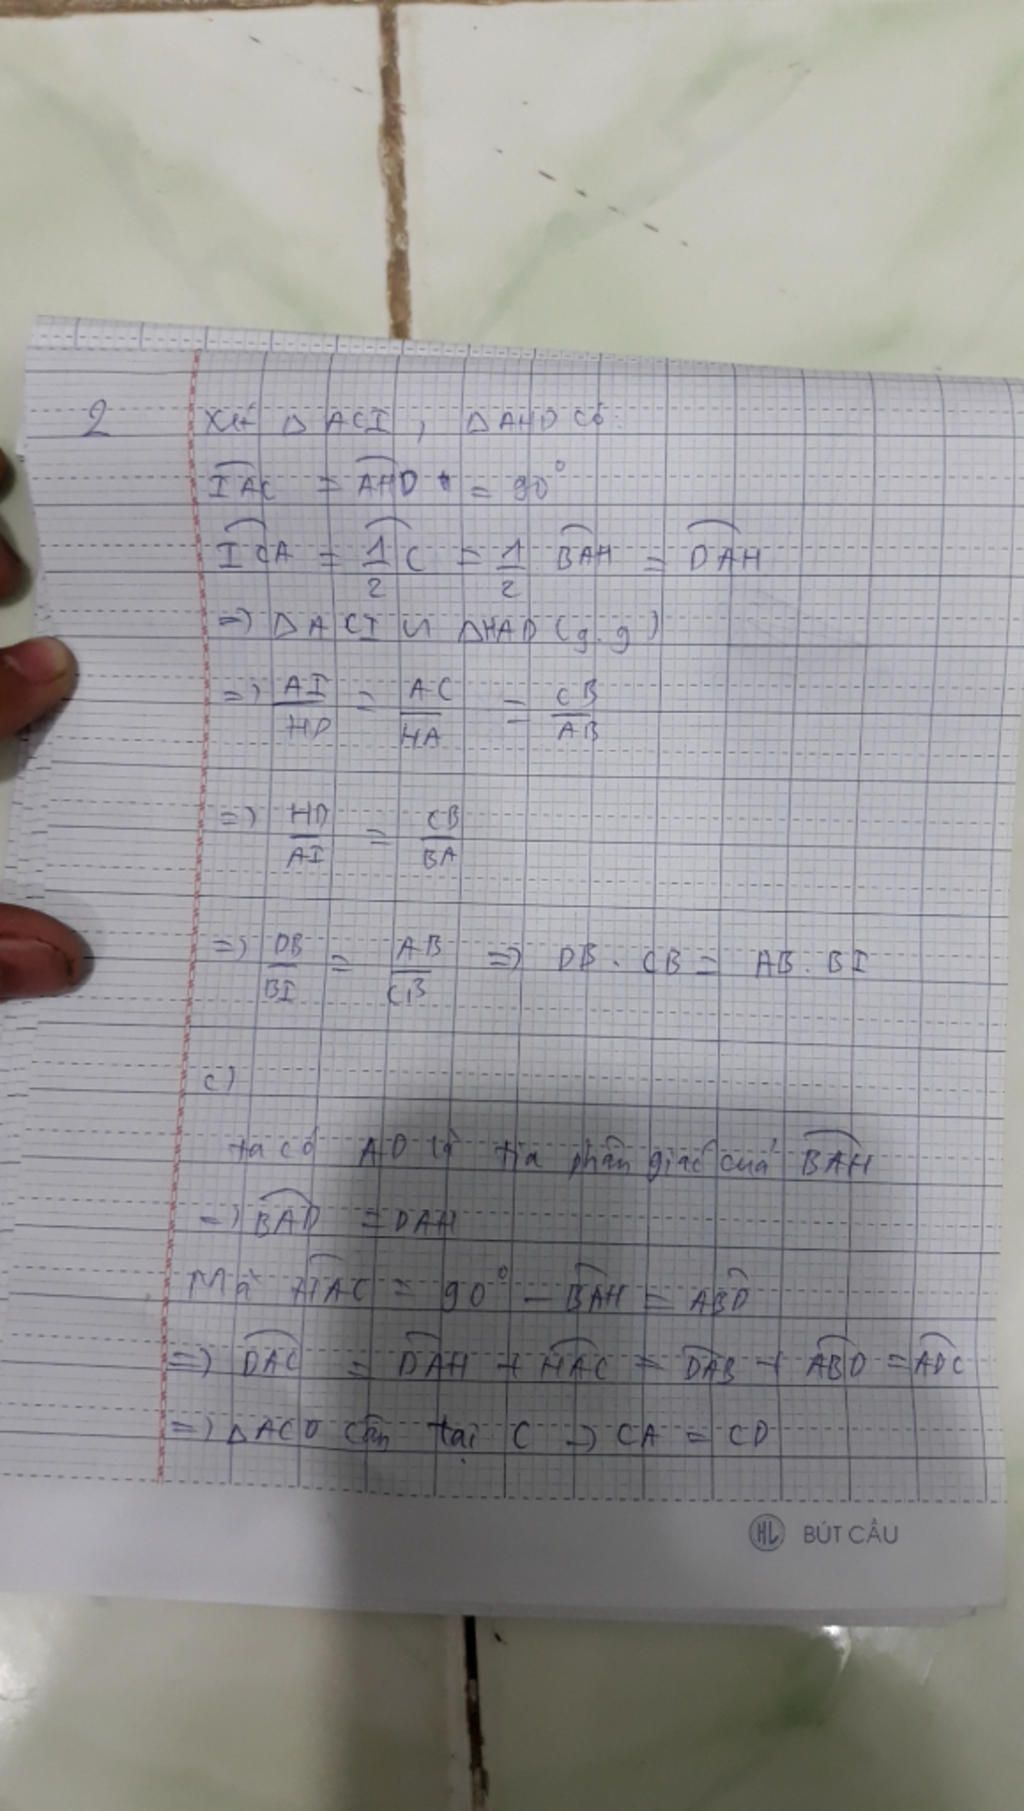 2 Xét Δ ACI, Δ AHD có:
IAC = AHD = 90°
ICA = 1/2 C = 1/2 BAH = DAH
=> Δ ACI ∽ ΔHAD (g.g)
=> AI/HD = AC/HA = CB/AB
=> HD/AI = CB/BA
=> DB/BI = AB/CB => DB . CB = AB . BI
c)
ta có AD là tia phân giác của BAH
=> BAD = DAH
Mà HAC = 90° - BAH = ABD
=> DAC = DAH + HAC = DAB + ABD = ADC
=> Δ ACD cân tại C => CA = CD
HL BÚT CÂU